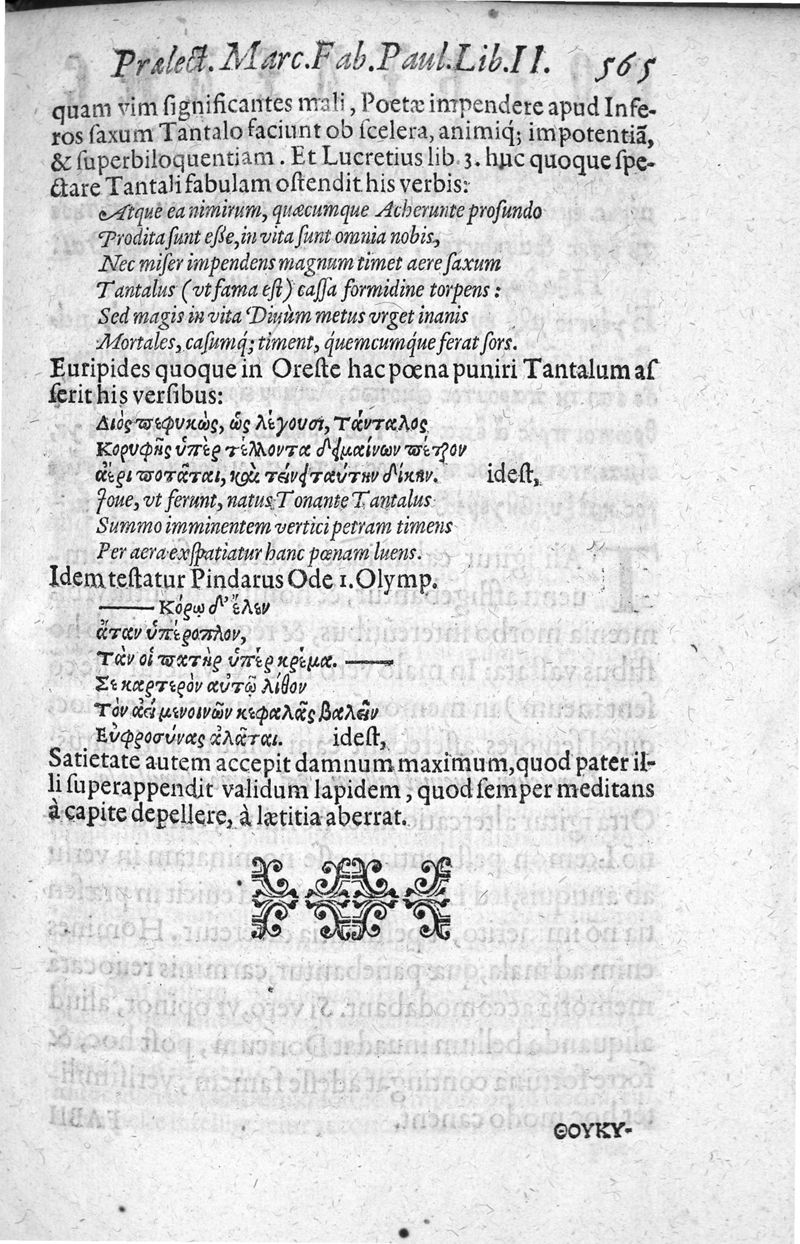 Prælect. Marc. Fab. Paul. Lib. II. 565
quam vim significantes mali, Poetæ impendere apud Infe-
ros saxum Tantalo faciunt ob scelera, animiq́; impotentiã,
& superbiloquentiam. Et Lucretius lib 3. huc quoque spe-
ctare Tantali fabulam ostendit his verbis:
Atque ea nimirum, quæcumque Acherunte profundo
Prodita sunt esse, in vita sunt omnia nobis,
Nec miser impendens magnum timet aere saxum
Tantalus (vt fama est) cassa formidine torpens:
Sed magis in vita Diuûm metus vrget inanis
Mortales, casumq́; timent, quemcumque ferat sors.
Euripides quoque in Oreste hac pœna puniri Tantalum as
serit his versibus:
Διὸς πεφυκὼς, ὡς λέγουσι, τάνταλος
Κορυφῆς ὑπὲρ τέλλοντα δειμαίνων πέτρον
ἀέρι ποτᾶται, καὶ τίνει ταύτην δίκην. idest,
Ioue, vt ferunt, natus Tonante Tantalus
Summo imminentem vertici petram timens
Per aera exspatiatur hanc pœnam luens.
Idem testatur Pindarus Ode 1. Olymp.
—— Κόρῳ δ' ἕλεν
ἄταν ὑπέροπλον,
Τὰν οἱ πατὴρ ὑπὲρ κρέμα. ——
Σε καρτερὸν αὐτῷ λίθον
Τὸν ἀεί μενοινῶν κεφαλᾶς βαλεῖν
Εὐφροσύνας ἀλᾶται. idest,
Satietate autem accepit damnum maximum, quod pater il-
li superappendit validum lapidem, quod semper meditans
à capite depellere, à lætitia aberrat.
ΘΟΥΚΥ-